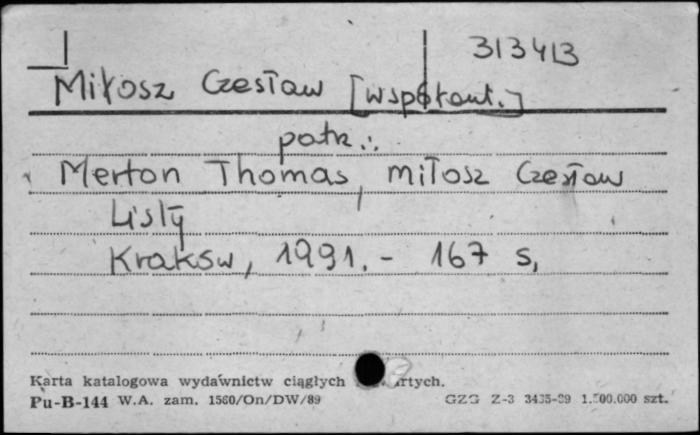 313413
Miłosz Czesław [współaut.]
patrz.:
Merton Thomas, Miłosz Czesław
Listy
Kraków, 1991. - 167 s,
Karta katalogowa wydawnictw ciągłych
Pu-B-144 W.A. zam. 1560/On/DW/89 GZG Z-3 3435-89 1.500.000 szt.